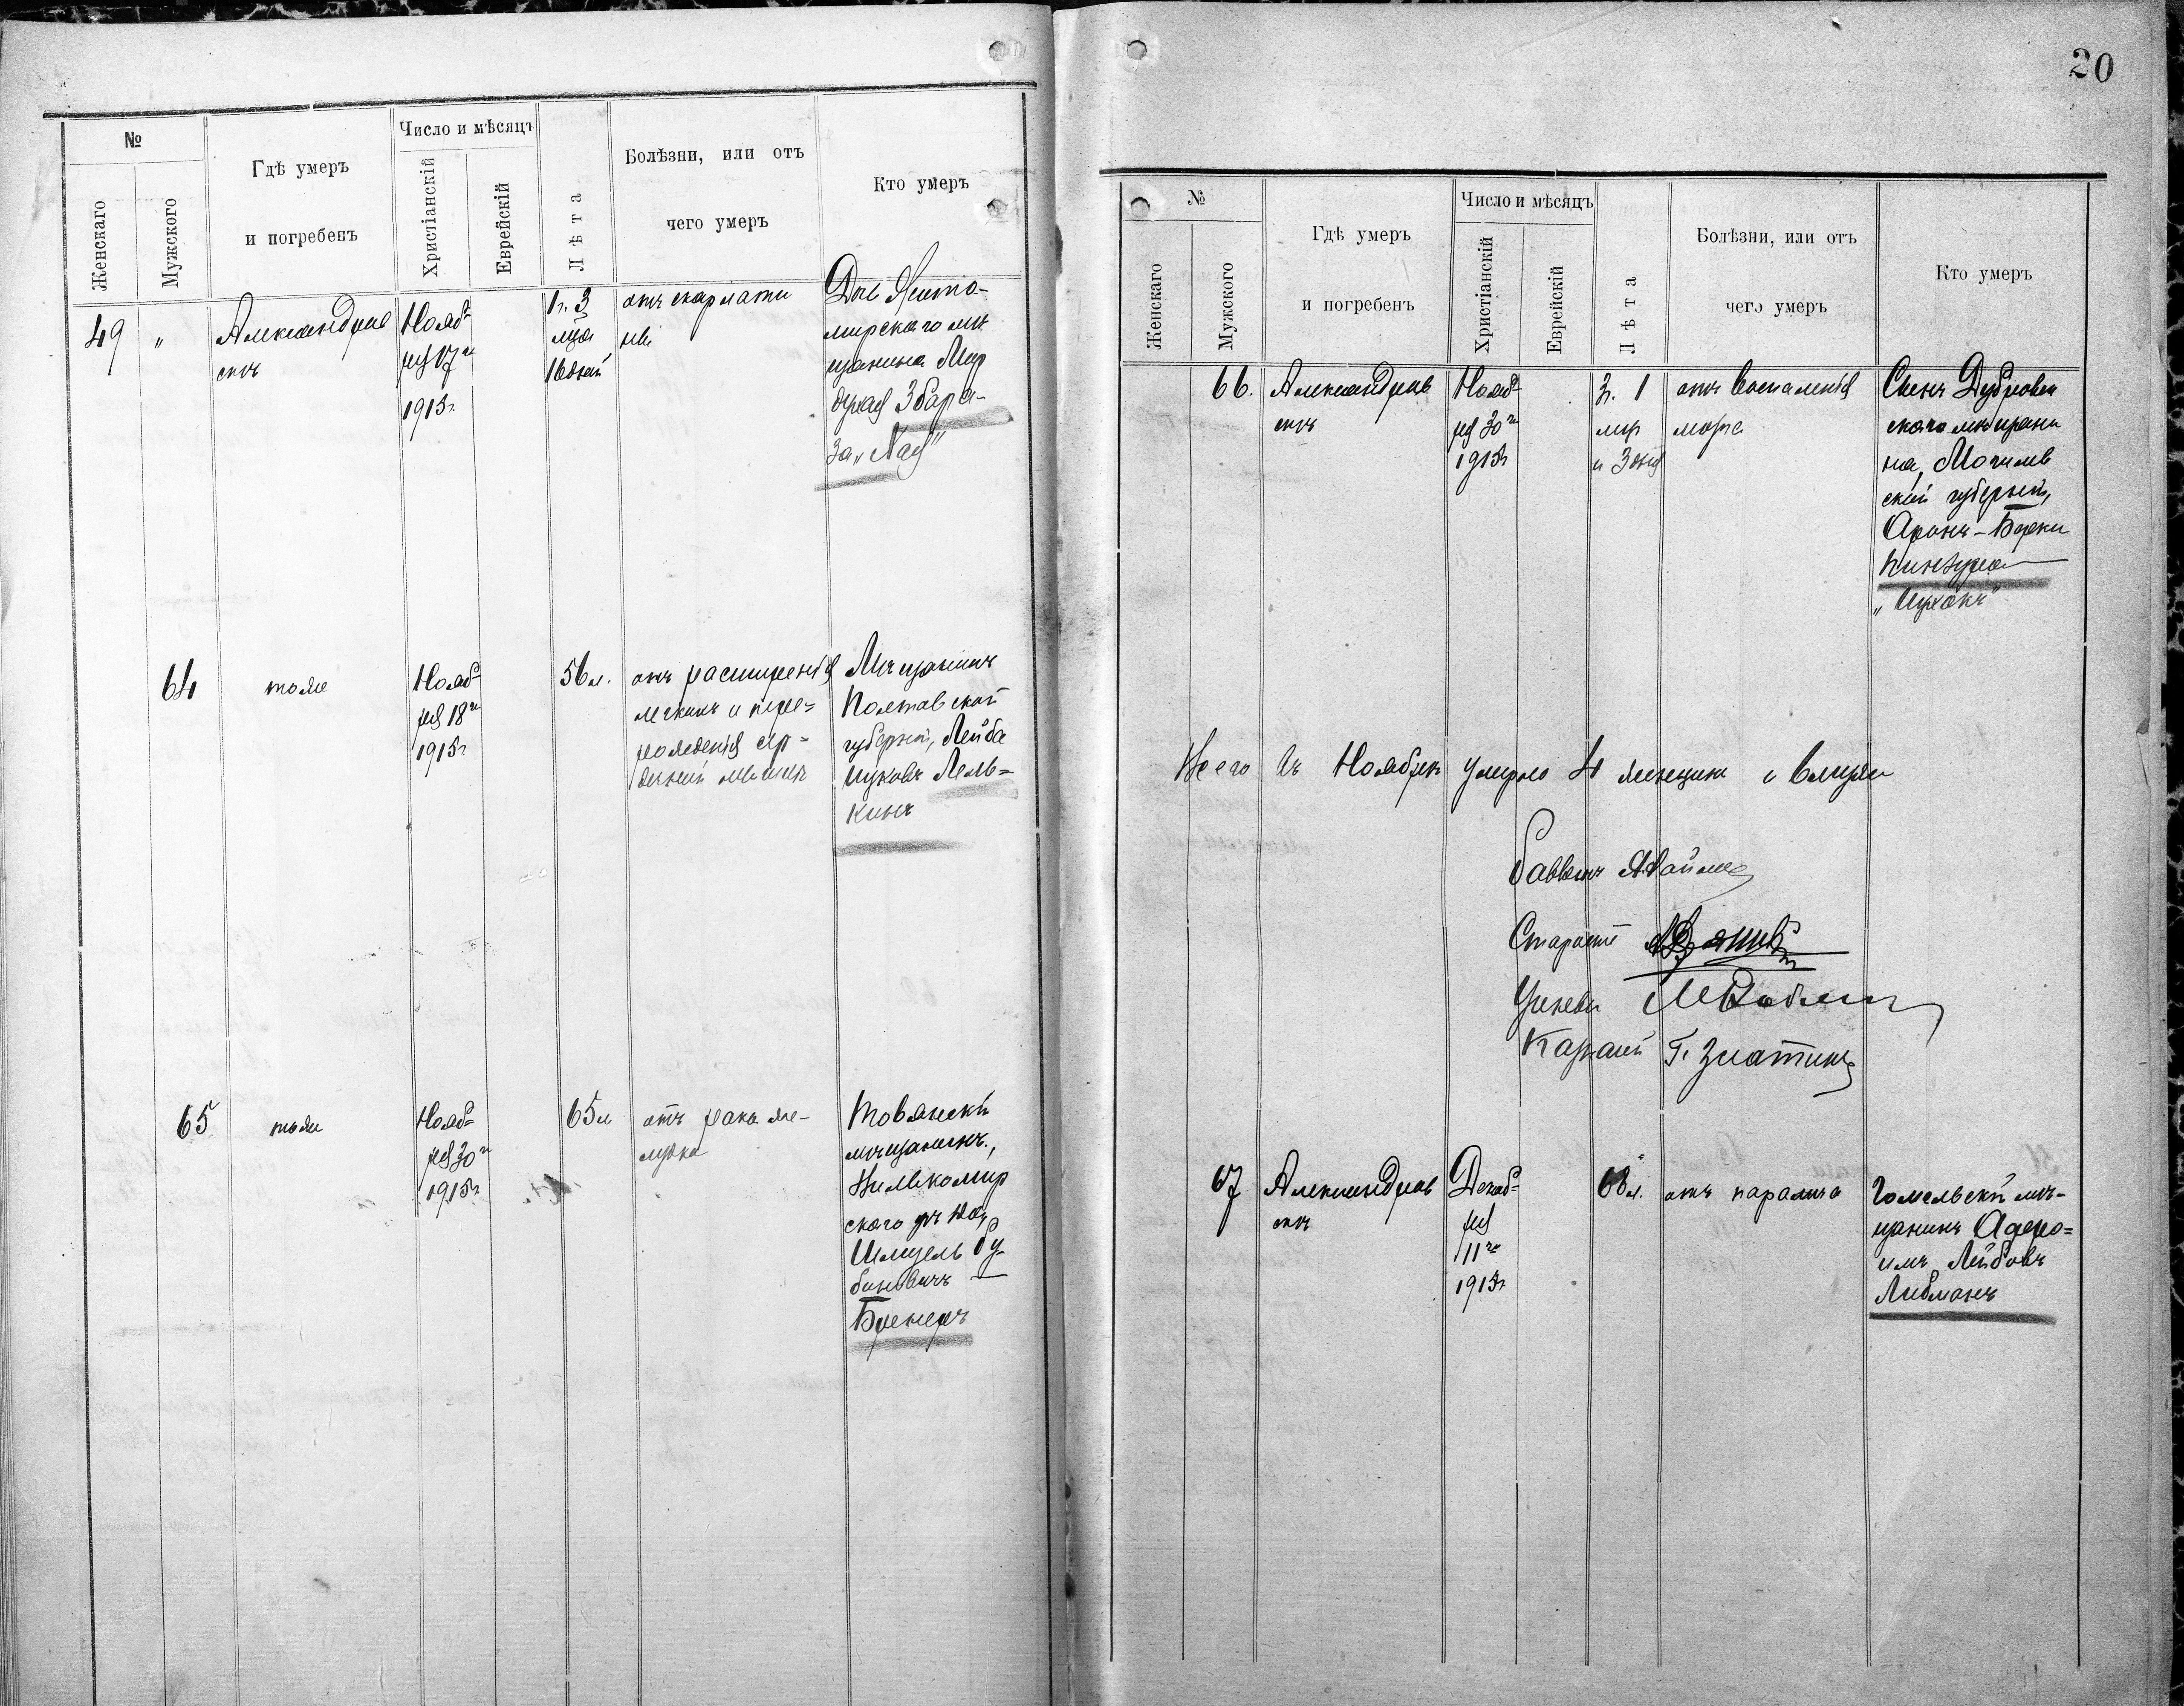 20
№
Женскаго
Мужского
Гдѣ умеръ
и погребенъ
Число и мѣсяцъ
Христіанскій
Еврейскій
Лѣта
Болѣзни, или отъ
чего умеръ
Кто умеръ
49 "
Александров
скъ
Нояб-
ря 17го
1915г.
1г. 3
мца
16 дней
отъ скарлати
ны
Дочь Жито-
мирскаго мѣ
щанина Мор
духая Збара-
за „Хая"
64
тоже
Нояб-
ря 18го
1915г
56 л.
отъ расширенія
легкихъ и пере=
рожденія сер=
дечной мышцы
Мѣщанинъ
Полтавской
губерніи, Лейба
Ицковъ Лель=
кинъ
65
тоже
Нояб=
ря 30го
1915г
65 л
отъ рака же-
лудка
Товянскій
мѣщанинъ,
Вилькомир
скаго уѣзда,
Шмуель Ру-
биновичъ
Бренеръ
№
Женскаго
Мужского
Гдѣ умеръ
и погребенъ
Число и мѣсяцъ
Христіанскій
Еврейскій
Лѣта
Болѣзни, или отъ
чего умеръ
Кто умеръ
66.
Александров
скъ
Нояб-
ря 30го
1915г
3г. 1
мца
и 3 дня
отъ воспаленія
мозга
Сынъ Дубровен
скаго мѣщани
на, Могилев
ской губерніи,
Аронъ-Берки
„Ицхокъ"
Всего въ Ноябрѣ умерло 4 женщины и
Раввинъ
Староста
Ученый
Казначей Г. Златкинъ
67
Александров
скъ
Декаб=
ря
11го
1915г
68 л.
отъ паралича
Гомельскій мѣ-
щанинъ
Лейбовъ
Либманъ